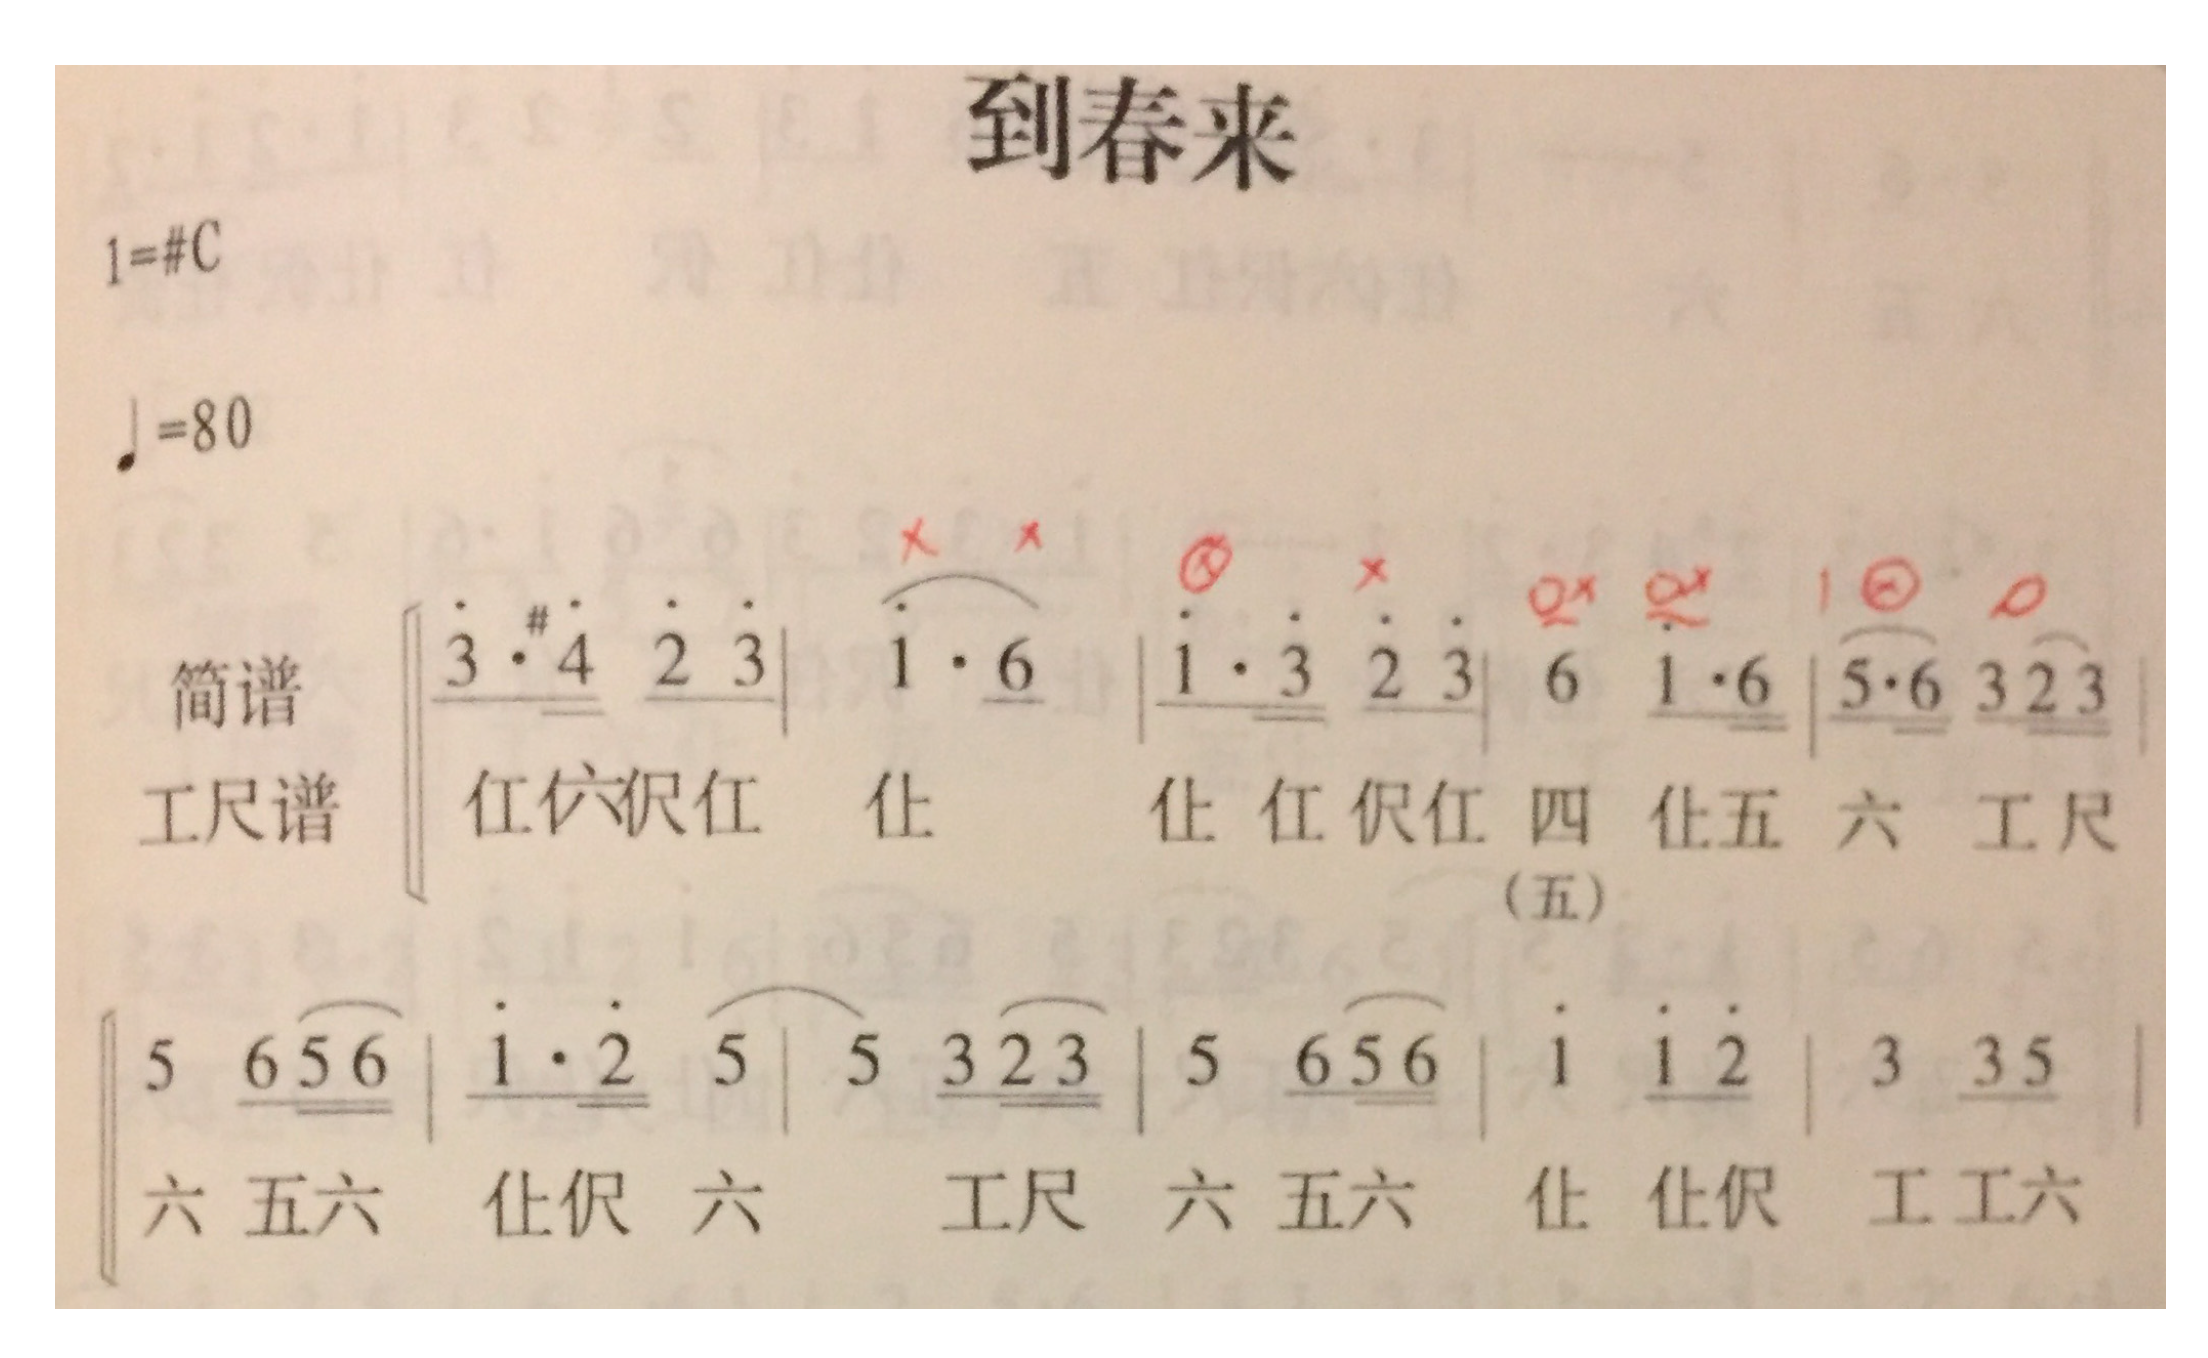 到春来
1=#C
♩=80
× × ⊗ × o× o× 1 ⊗ o
简谱 3̇·#4̇ 2̇ 3̇ | 1̇·6 | 1̇·3̇ 2̇ 3̇ | 6 1̇·6 | 5·6 3 2 3 |
工尺谱 仜 𠆾 伬 仜 仩 仩 仜 伬 仜 四 仩 五 六 工 尺
(五)
5 6 5 6 | 1̇·2̇ 5 | 5 3 2 3 | 5 6 5 6 | 1̇ 1̇ 2̇ | 3 3 5 |
六 五 六 仩 伬 六 工 尺 六 五 六 仩 仩 伬 工 工 六